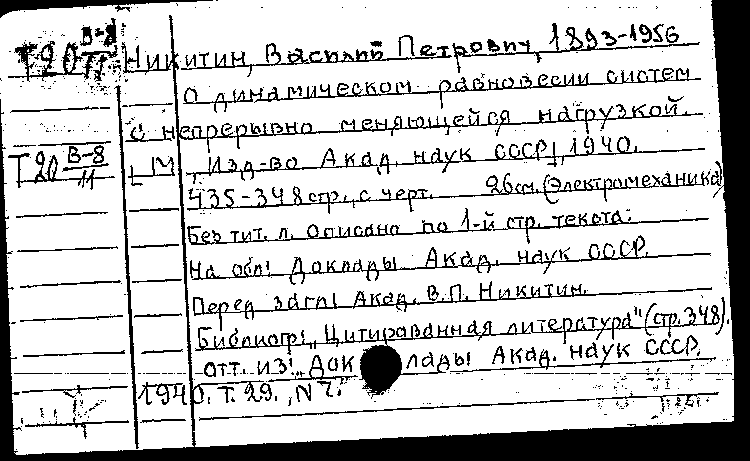 Т20 В-8/11 Никитин, Василий Петрович, 1893-1956
О динамическом равновесии систем
с непрерывно меняющейся нагрузкой.
Т20 В-8/11 [М., Изд-во Акад. наук СССР], 1940.
435-348 стр., с черт. 26 см. (Электромеханика)
Без тит. л. Описано по 1-й стр. текста.
На обл: Доклады Акад. наук СССР.
Перед загл: Акад. В.П. Никитин.
Библиогр: „Цитированная литература" (стр. 348).
Отт. из: „Доклады Акад. наук СССР.
1940. Т. 29., N 7.